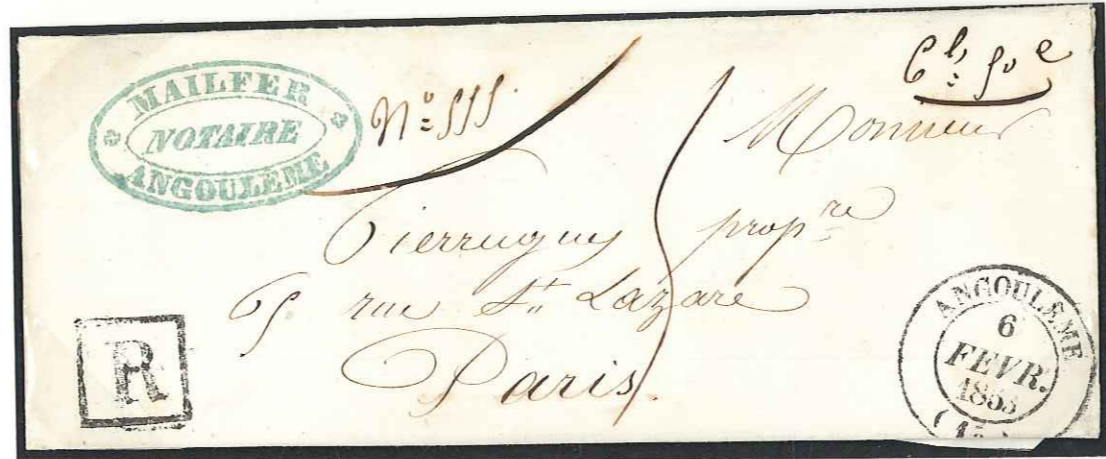 MAILFER
NOTAIRE
ANGOULÊME
N° 555
Monsieur
Pierrugues prop.re
65 rue St. Lazare
Paris.
R
ANGOULEME
6
FEVR.
1853